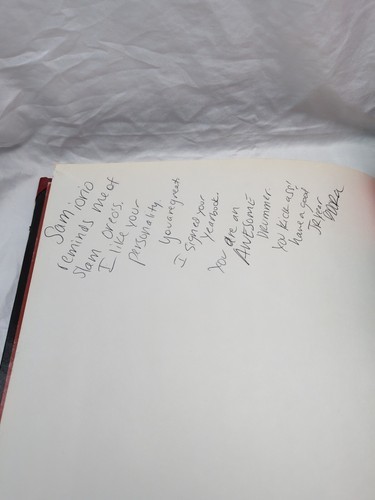 Sam iorio
reminds me of
slam oreos.
I like your
personality.
you are great
I signed your
yearbook.
You are an
AWESOME
DRUMMER.
You kick ass!
have a good
JR year